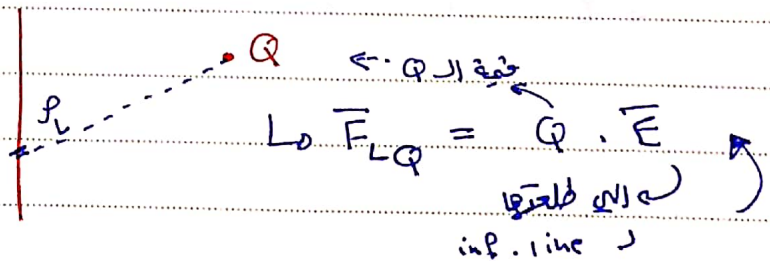 Q
قيمة الـ Q
ρL
↳ F̅LQ = Q . E̅
↳ اللي طلعتها
لـ inf. line